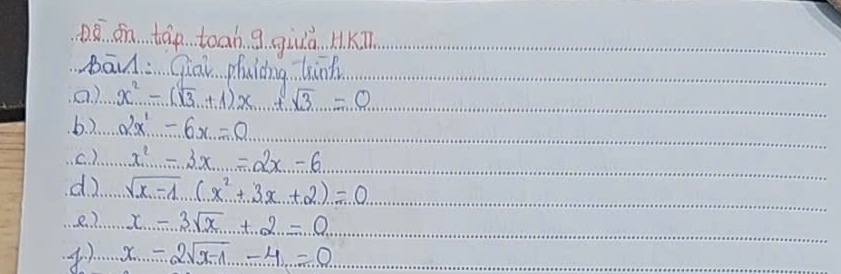 Đề ôn tập toán 9 giữa HKII
Bài 1: Giải phương trình
a) x² - (√3 + 1)x + √3 = 0
b) 2x² - 6x = 0
c) x² - 3x = 2x - 6
d) √(x-1) (x² + 3x + 2) = 0
e) x - 3√x + 2 = 0
f) x - 2√(x-1) - 4 = 0